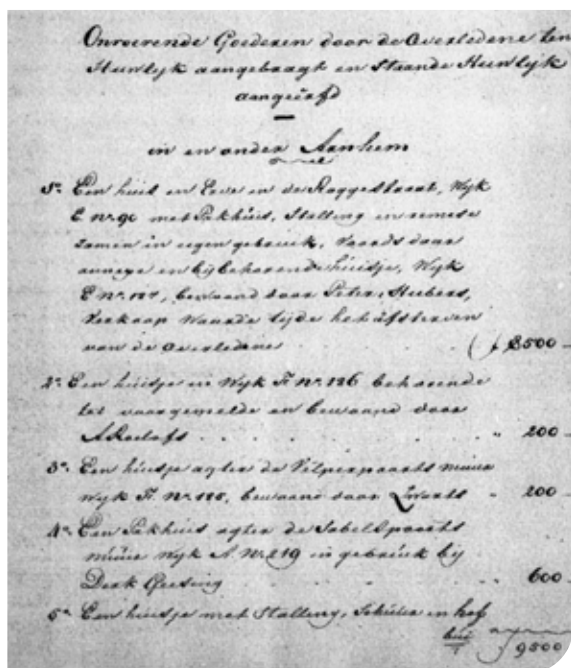 Onroerende Goederen door de Overledene ten
Huwlyk aangebragt en Staande Huwlyk
aangeërfd
in en onder Arnhem
1º. Een huis en Erve in de Roggestraat, Wyk
E nº. 90 met Pakhuis, Stalling en remise
zamen in eigen gebruik, voords daar
annexe en bijbehorende huisje, Wyk
E nº. bewoond door Peter Hubers,
Verkoop Waarde tijde het afsterven
van de Overledene f 8500
2º. Een huisje in Wyk F. nº. 126 behorende
tot voorgemelde en bewoond door
A Roelofs 200
3º. Een huisje agter de Velperpoorts muur
Wyk F. Nº. bewoond door 200
4º. Een Pakhuis agter de Sabelspoorts
muur Wyk A Nº. 219 in gebruik bij
Derk 600
5º. Een huisje met Stalling, Schuur en hof
f 9500